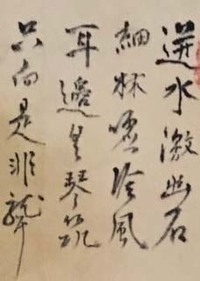 迸水激幽石
細林冷風
耳邊琴筑
只向是非聾